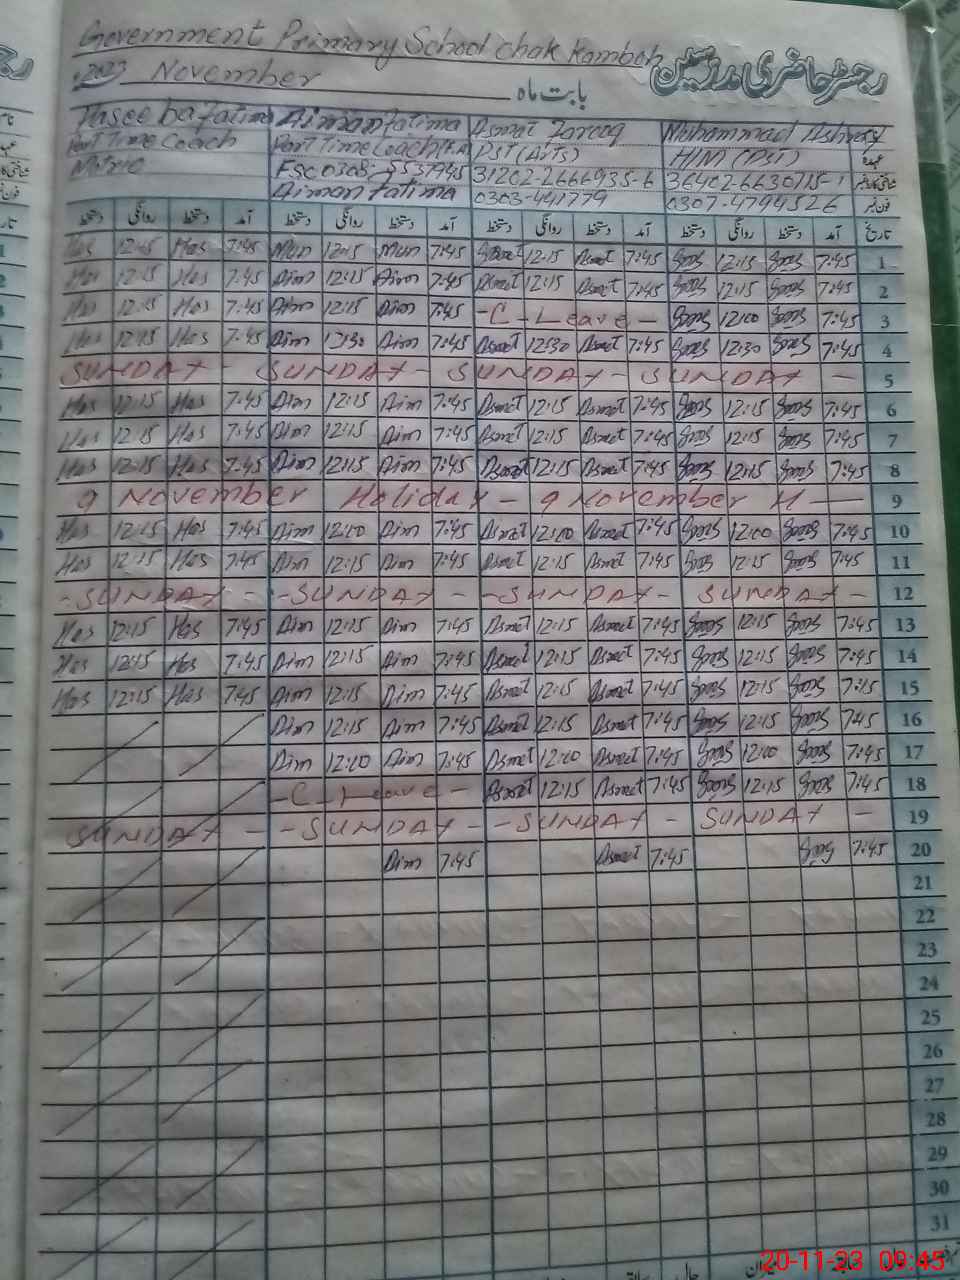 Government Primary School Chak Kamboh
رجسٹر حاضری مدرسین
2023 November بابت ماہ
Haseeba Fatima Aiman Fatima Asmat Farooq Muhammad Ashraf
Part Time Coach Part Time Coach PST (Arts) H/M (PST) عہدہ
Matric FSC 0308-5537945 31202-2666935-6 36402-6630715-1
Aiman Fatima 0303-441779 0307-4794526 فون نمبر
دستخط روانگی دستخط آمد دستخط روانگی دستخط آمد دستخط روانگی دستخط آمد دستخط روانگی دستخط آمد تاریخ
Has 12:15 Has 7:45 Mun 12:15 Mun 7:45 Asmat 12:15 Asmat 7:45 12:15 7:45 1
Has 12:15 Has 7:45 Aim 12:15 Aim 7:45 Asmat 12:15 Asmat 7:45 12:15 7:45 2
Has 12:15 Has 7:45 Aim 12:15 Aim 7:45 - C - Leave - 12:00 7:45 3
Has 12:15 Has 7:45 Aim 12:30 Aim 7:45 Asmat 12:30 Asmat 7:45 12:30 7:45 4
SUNDAY - SUNDAY - SUNDAY - SUNDAY - 5
Has 12:15 Has 7:45 Aim 12:15 Aim 7:45 Asmat 12:15 Asmat 7:45 12:15 7:45 6
Has 12:15 Has 7:45 Aim 12:15 Aim 7:45 Asmat 12:15 Asmat 7:45 12:15 7:45 7
Has 12:15 Has 7:45 Aim 12:15 Aim 7:45 Asmat 12:15 Asmat 7:45 12:15 7:45 8
9 November Holiday - 9 November H - 9
Has 12:15 Has 7:45 Aim 12:00 Aim 7:45 Asmat 12:00 Asmat 7:45 12:00 7:45 10
Has 12:15 Has 7:45 Aim 12:15 Aim 7:45 Asmat 12:15 Asmat 7:45 12:15 7:45 11
- SUNDAY - - SUNDAY - - SUNDAY - SUNDAY - 12
Has 12:15 Has 7:45 Aim 12:15 Aim 7:45 Asmat 12:15 Asmat 7:45 12:15 7:45 13
Has 12:15 Has 7:45 Aim 12:15 Aim 7:45 Asmat 12:15 Asmat 7:45 12:15 7:45 14
Has 12:15 Has 7:45 Aim 12:15 Aim 7:45 Asmat 12:15 Asmat 7:45 12:15 7:15 15
Aim 12:15 Aim 7:45 Asmat 12:15 Asmat 7:45 12:15 7:45 16
Aim 12:00 Aim 7:45 Asmat 12:00 Asmat 7:45 12:00 7:45 17
- C - Leave - Asmat 12:15 Asmat 7:45 12:15 7:45 18
SUNDAY - - SUNDAY - - SUNDAY - SUNDAY - 19
Aim 7:45 Asmat 7:45 7:45 20
21
22
23
24
25
26
27
28
29
30
31
20-11-23 09:45